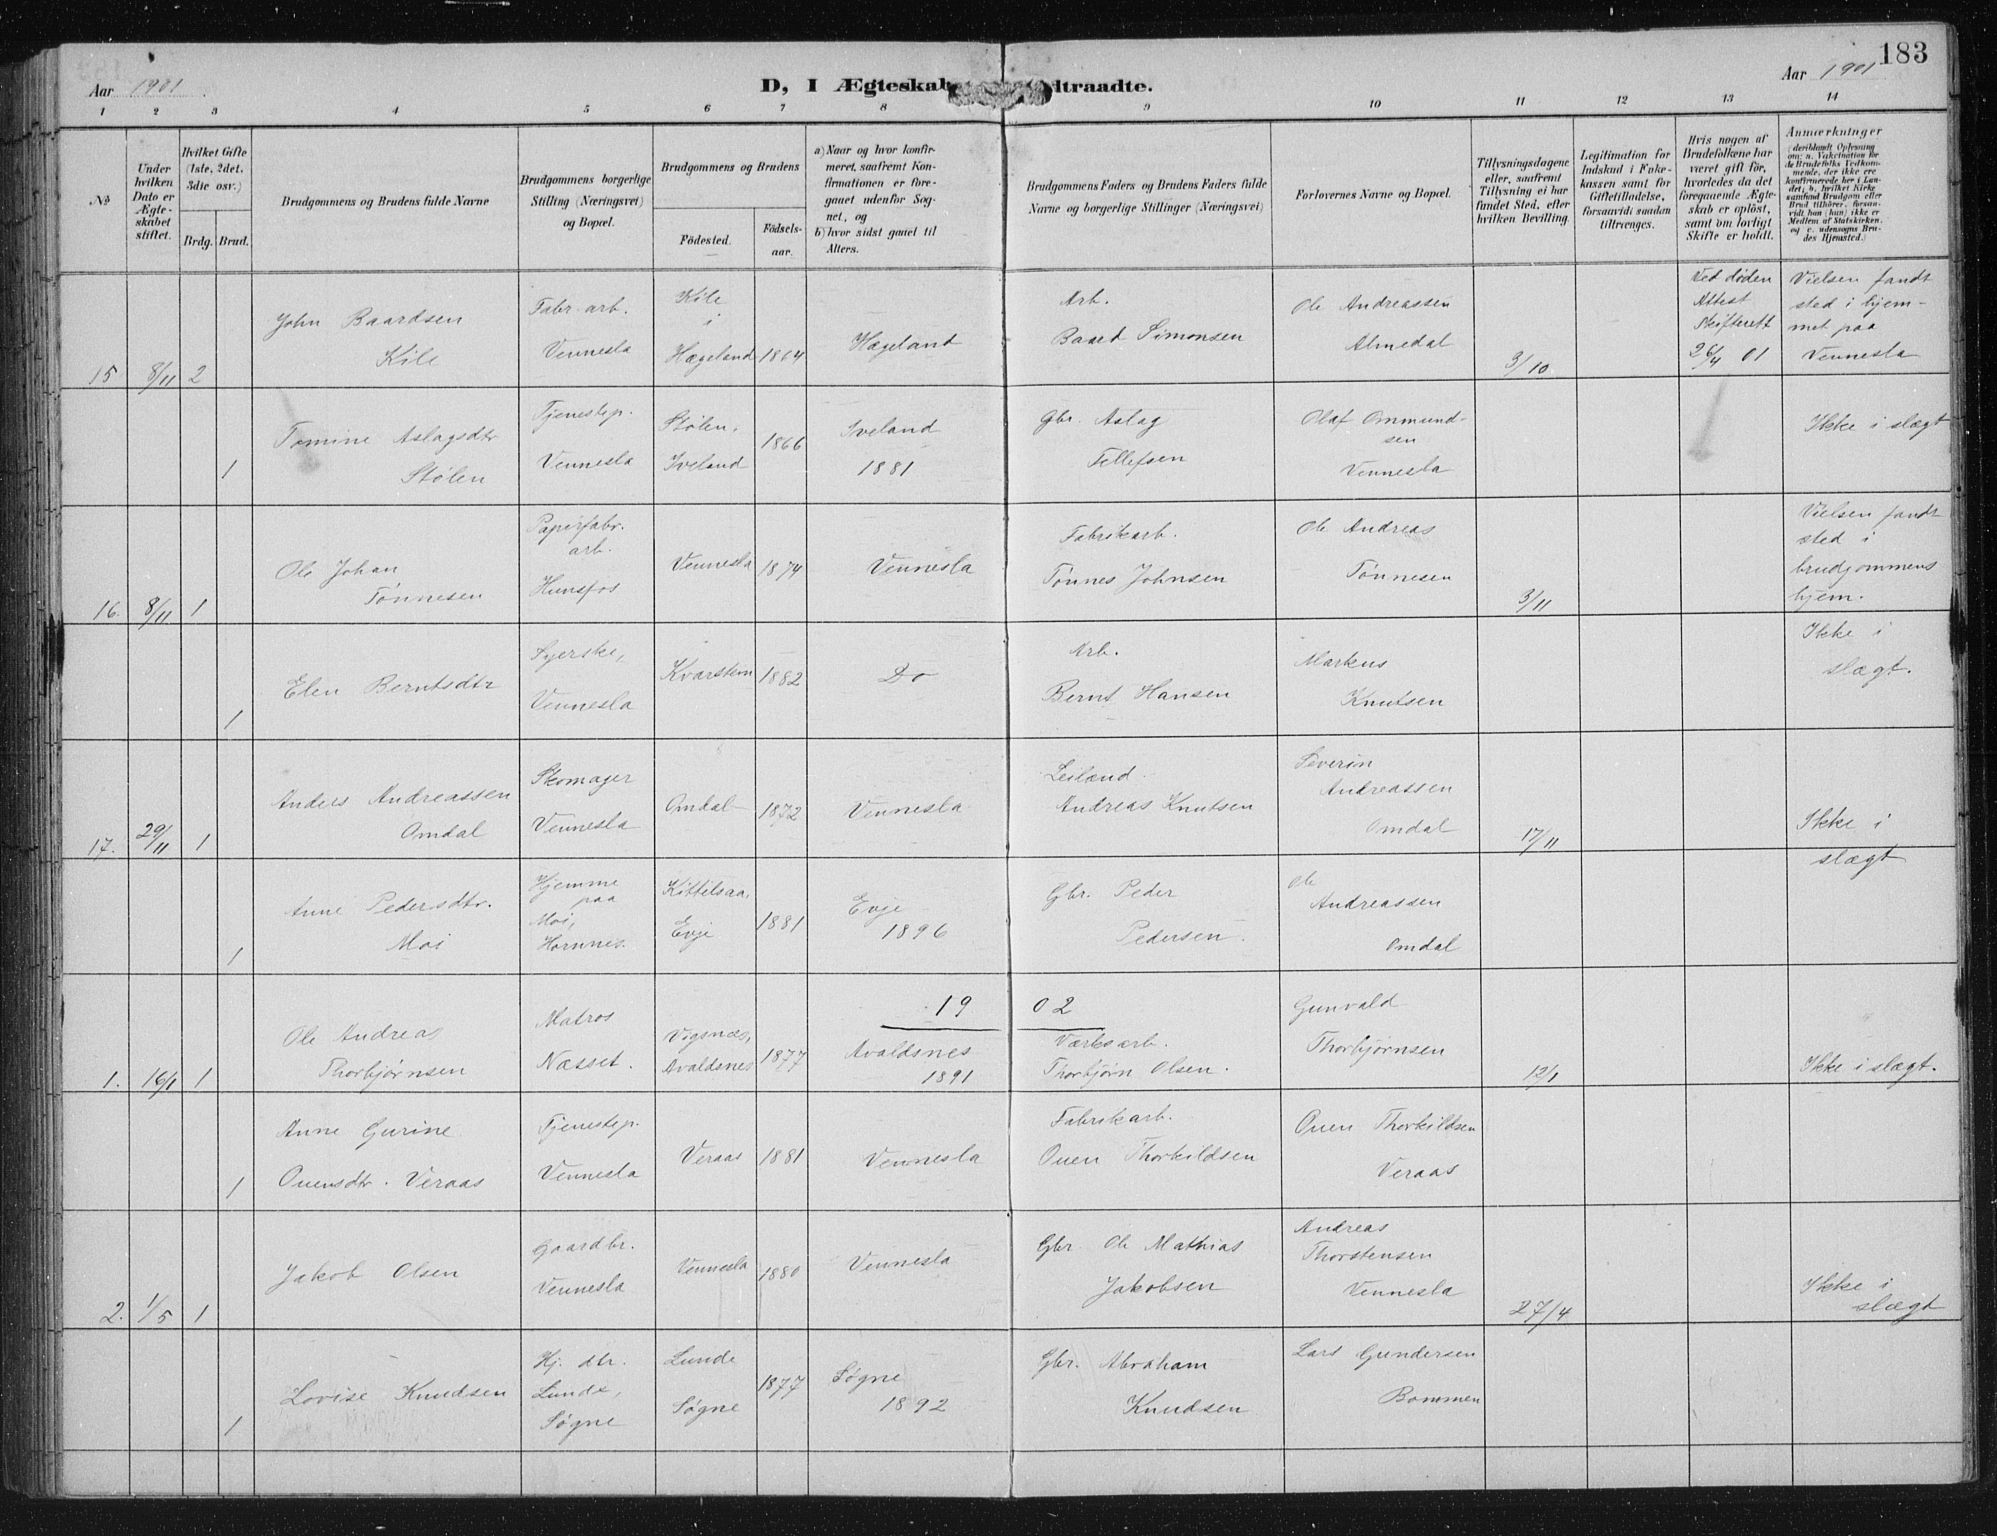 183
Aar 1901
D, I Ægteskab Indtraadte.
Aar 1901
1 2 3 4 5 6 7 8 9 10 11 12 13 14
№
Under hvilken Dato er Ægteskabet stiftet.
Hvilket Gifte (1ste, 2det, 3die osv.)
Brdg. Brud.
Brudgommens og Brudens fulde Navne
Brudgommens borgerlige Stilling (Næringsvei) og Bopæl.
Brudgommens og Brudens
Fødested.
Fødselsaar.
a) Naar og hvor konfirmeret, saafremt Konfirmationen er foregaaet udenfor Sognet, og
b) hvor sidst gaaet til Alters.
Brudgommens Faders og Brudens Faders fulde Navne og borgerlige Stillinger (Næringsvei)
Forlovernes Navne og Bopæl.
Tillysningsdagene eller, saafremt Tillysning ei har fundet Sted, efter hvilken Bevilling.
Legitimation for Indskud i Enkekassen samt for Giftetilladelse, forsaavidt saadan tiltrænges.
Hvis nogen af Brudefolkene har været gift før, hvorledes da det foregaaende Ægteskab er opløst, samt om lovligt Skifte er holdt.
Anmærkninger (deriblandt Oplysning om: a. Vakcination for de Brudefolks Vedkommende, der ikke ere konfirmerede her i Landet; b. hvilket Kirkesamfund Brudgom eller Brud tilhører, forsaavidt han (hun) ikke er Medlem af Statskirken, og c. udensogns Brudes Hjemsted.)
15 8/11 2 John Baardsen Kile
Fabr. arb. Vennesla
Kile i Hægeland 1864
Hægeland
Arb. Baard Simonsen
Ole Andreassen Almedal
3/10
Ved døden Attest Skifterett 26/4 01
Vielsen fandt sted i hjemmet paa Vennesla
1 Tomine Aslagsdtr Stølen
Tjenestep. Vennesla
Stølen, Iveland 1866
Iveland 1881
Gbr. Aslag Tellefsen
Olaf Ommundsen Vennesla
Ikke i slægt
16. 8/11 1 Ole Johan Tønnesen
Papirfabr. arb. Hunsfos
Vennesla 1874
Vennesla
Fabrikarb. Tønnes Johnsen
Ole Andreas Tønnesen
3/11
Vielsen fandt sted i brudgommens hjem.
1 Elen Berntsdtr
Syerske, Vennesla
Kvarstein 1882
Do
Arb. Bernt Hansen
Markus Knutsen
Ikke i slægt.
17. 29/11 1 Anders Andreassen Omdal
Skomager Vennesla
Omdal 1872
Vennesla
Leilænd. Andreas Knutsen
Severin Andreassen Omdal
17/11
Ikke i slægt
1 Anne Pedersdtr. Moi
Hjemme paa Moi, Hornnes.
Kittilsaa, Evje 1881
Evje 1896
Gbr. Peder Pedersen.
Ole Andreassen Omdal
1902
1. 16/1 1 Ole Andreas Thorbjørnsen
Matros Næsset.
Vigsnæs, Avaldsnes 1877
Avaldsnes 1891
Værksarb. Thorbjørn Olsen.
Gunvald Thorbjørnsen
12/1
Ikke i slægt.
1 Anne Gurine Ouensdtr. Veraas
Tjenestep. Vennesla
Veraas 1881
Vennesla
Fabrikarb. Ouen Thorkildsen
Ouen Thorkildsen Veraas
2. 1/5 1 Jakob Olsen
Gaardbr. Vennesla
Vennesla 1880
Vennesla
Gbr. Ole Mathias Jakobsen
Andreas Thorstensen Vennesla
27/4
Ikke i slægt
1 Lovise Knudsen
Hj. dtr. Lunde, Søgne
Lunde Søgne 1877
Søgne 1892
Gbr. Abraham Knudsen
Lars Gundersen Bommen